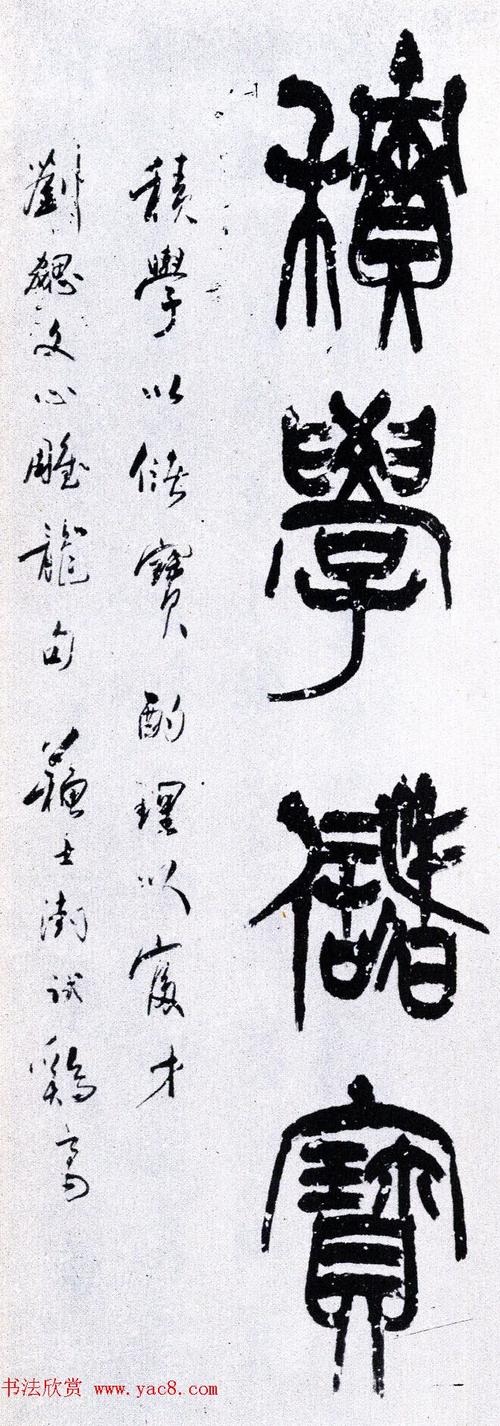 積學儲寶
積學以儲寶酌理以富才
劉勰文心雕龍句 蘇士澍試雞毫
书法欣赏 www.yac8.com